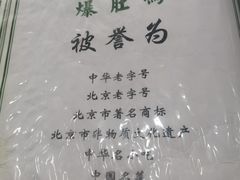 爆肚冯
被誉为
中华老字号
北京老字号
北京市著名商标
北京市非物质文化遗产
中华名小吃
中国名菜